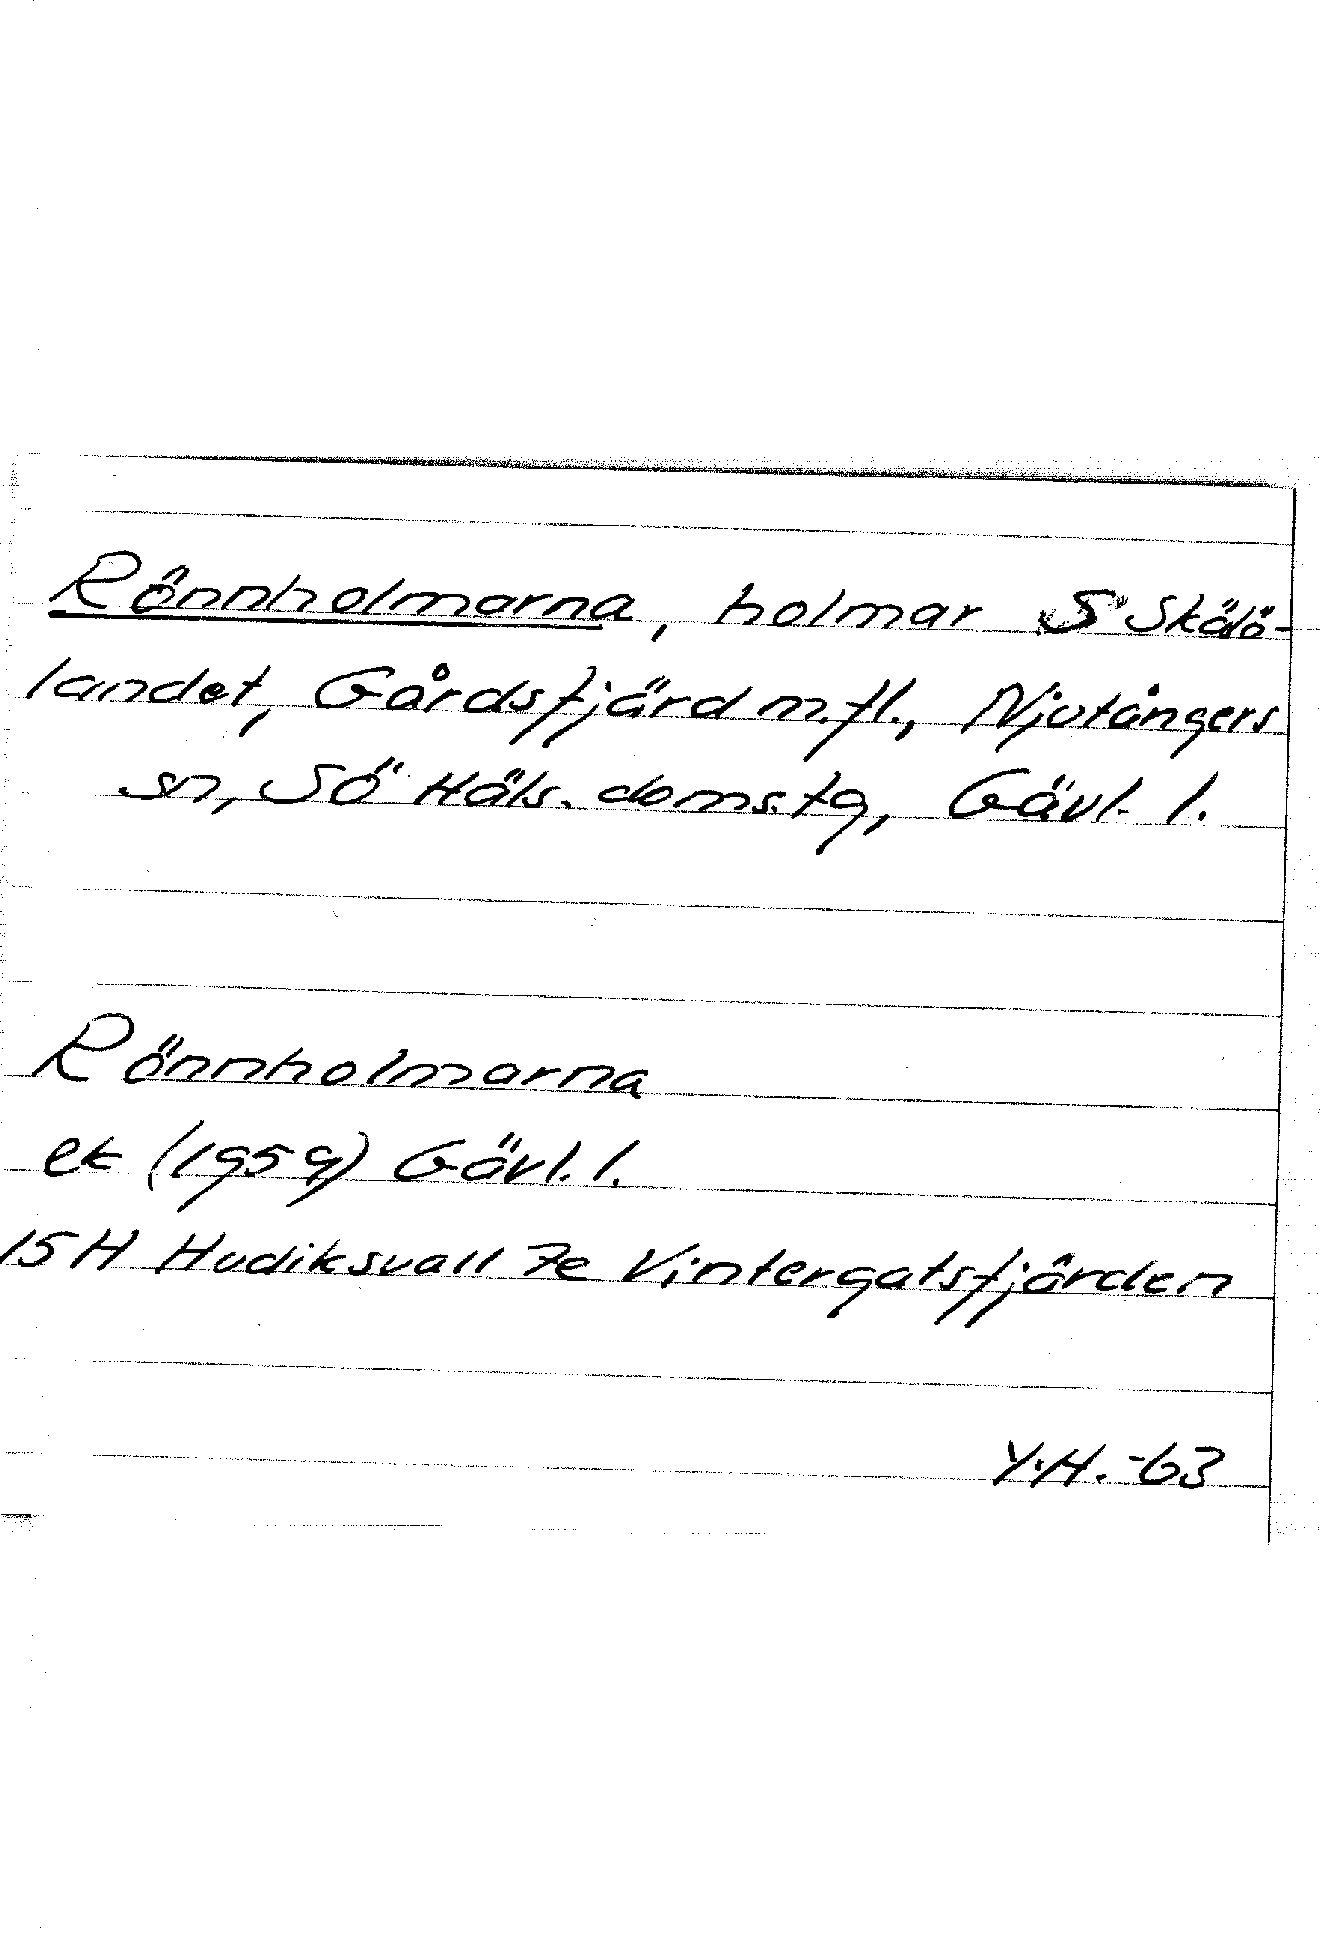 Rönnholmarna, holmar S Skålö-
landet, Gårdsfjärd m.fl., Njutångers
sn, SÖ Häls. doms.tg, Gävl. l.
Rönnholmarna
ek (1959) Gävl. l.
15H Hudiksvall 7e Vintergatsfjärden
Y.H. -63